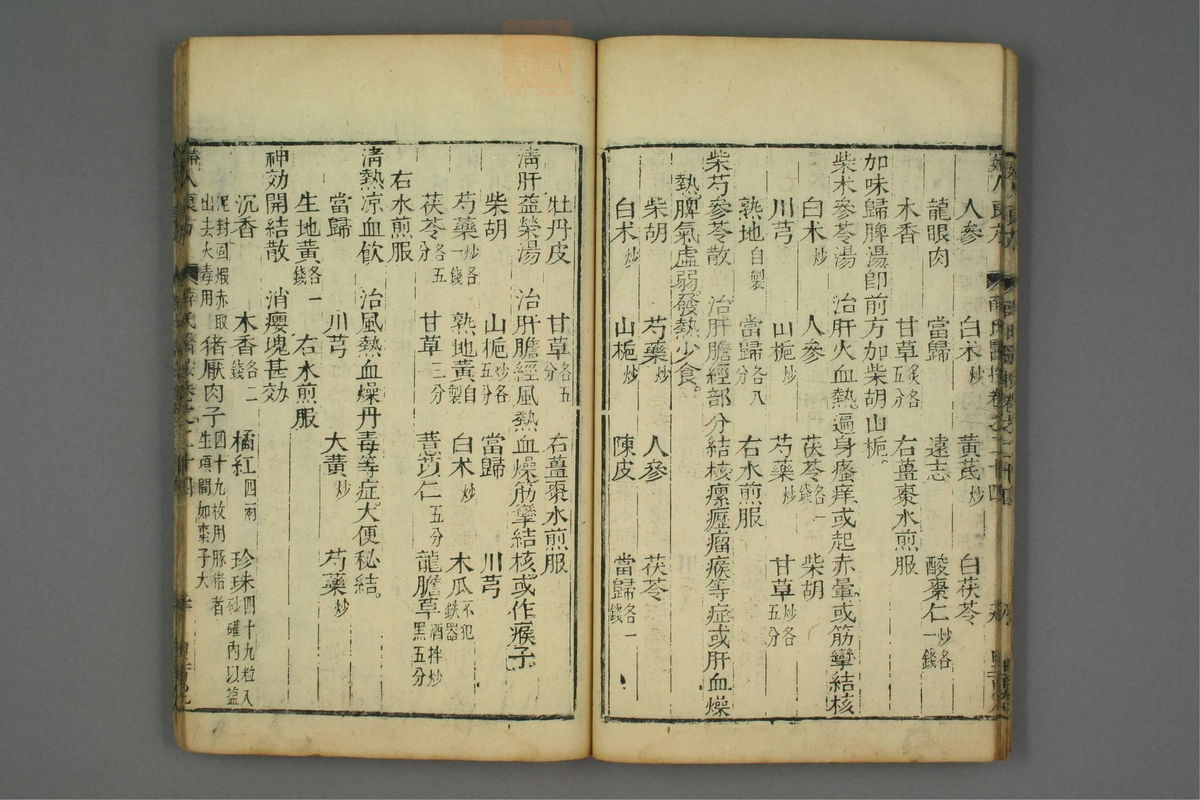 人參 白术炒 黃芪炒 白茯苓
龍眼肉 當歸 遠志 酸棗仁炒各一錢
木香 甘草炙各五分 右薑棗水煎服
加味歸脾湯卽前方加柴胡山梔
柴术參苓湯 治肝火血熱遍身瘙痒或起赤暈或筋攣結核
白术炒 人參 茯苓各一錢 柴胡
川芎 山梔炒 芍藥炒 甘草炒各五分
熟地自製 當歸各八分 右水煎服
柴芍參苓散 治肝膽經部分結核瘰癧瘤瘊等症或肝血燥
熱脾氣虛弱發熱少食
柴胡 芍藥炒 人參 茯苓
白术炒 山梔炒 陳皮 當歸各一錢
牡丹皮 甘草各五分 右薑棗水煎服
清肝益榮湯 治肝膽經風熱血燥筋攣結核或作瘊子
柴胡 山梔炒各五分 當歸 川芎
芍藥炒各一錢 熟地黃自製 白术炒 木瓜不犯鉄器
茯苓各五分 甘草三分 薏苡仁五分 龍膽草酒拌炒黑五分
右水煎服
清熱凉血飲 治風熱血燥丹毒等症大便秘結
當歸 川芎 大黃炒 芍藥炒
生地黃各一錢 右水煎服
神効開結散 消癭塊甚効
沉香 木香各二錢 橘紅四兩 珍珠四十九粒入砂確內以盐
泥封固煅赤取出去火毒用 猪厭肉子四十九枚用豚猪者生項間如棗子大